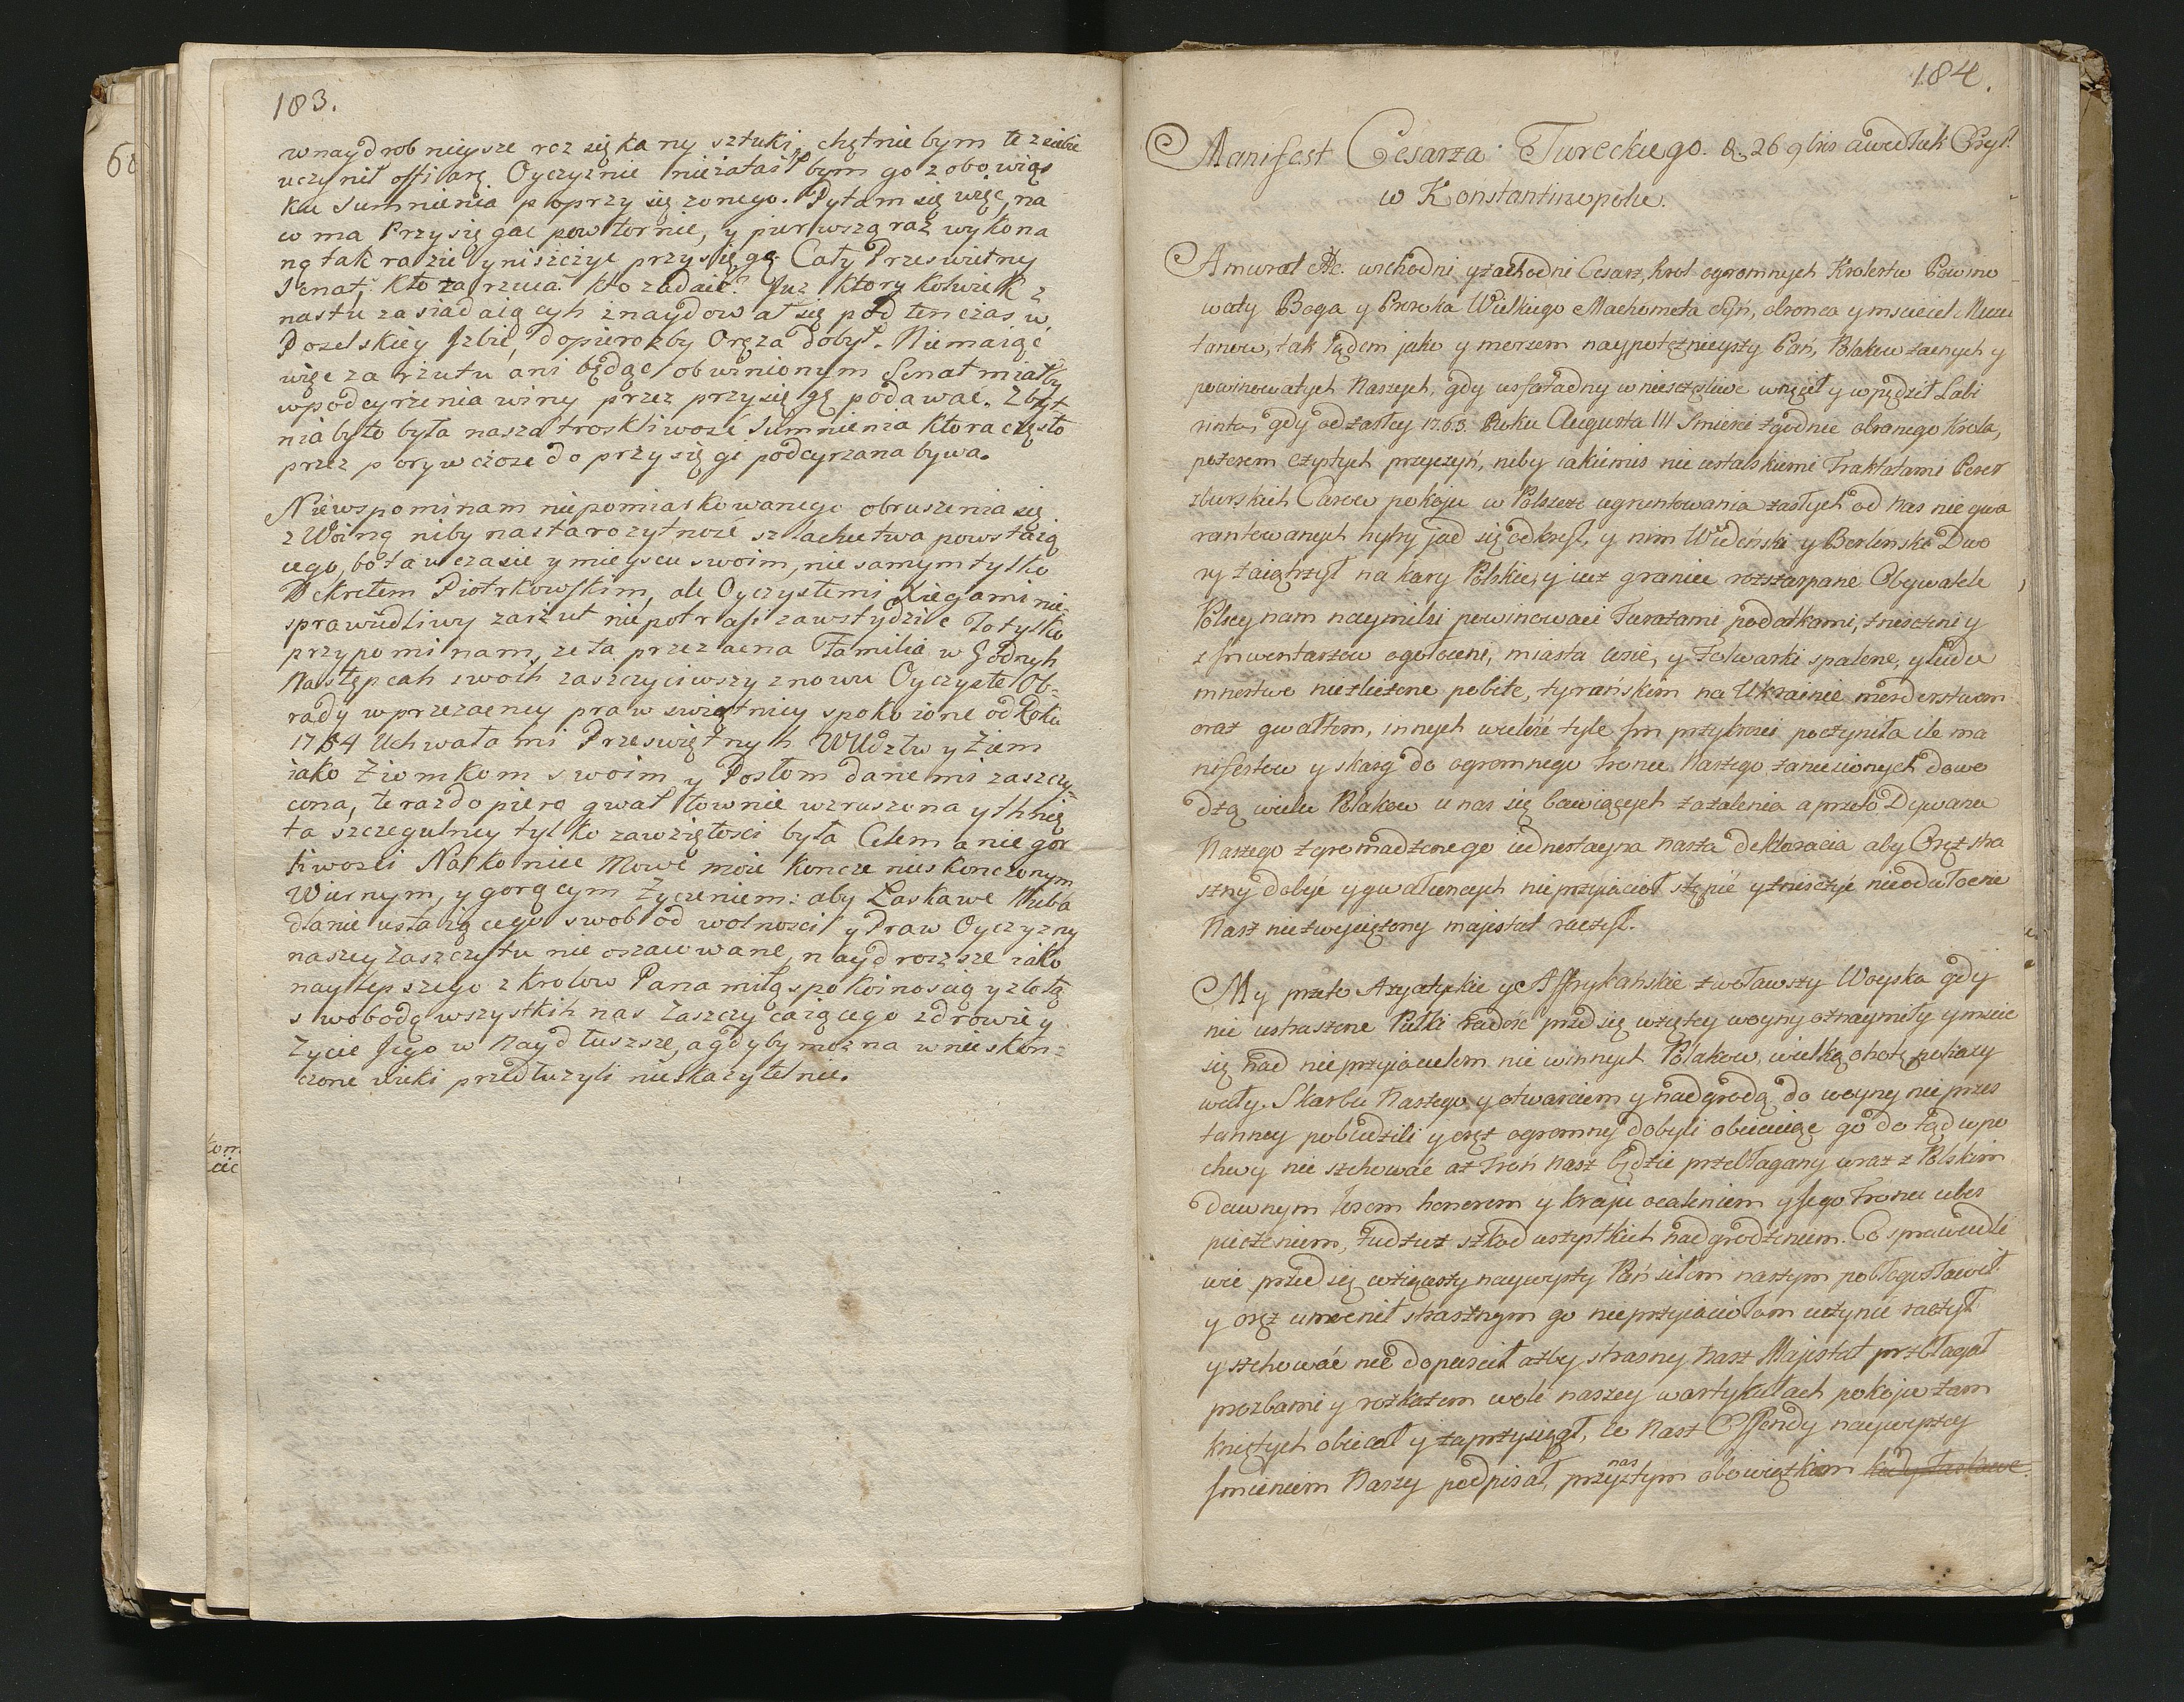 183.
wnaydrobnieysze rozsiękany sztuki, chętnie bym te zsiebie
uczynił offiarę Oyczyznie nieżałaś bym go z obowiąs
ku Sumnienia poprzysięzonego. Pytam się więc, na
co ma Przysięgac powtornie, y pierwszą raz wykona
ną tak razie y niszczyc przysięgę Cały Przeswietny
Senat, kto zarzuca kto zadaie? Juz ktory kolwiek z
nastu zasiadaiącyh znaydował się pod ten czas w
Poselskiey Jzbie, dopierożby Oręza dobył. Niemaiąc
więc zarzutu ani będąc obwinionym Senat miałby
wpodeyrzenia winy przez przysięgę podawać. Zbyt
nia było była nasza troskliwość Sumnienia ktora często
przez porywczose do przysięgi podeyrzana bywa.
Niewspominam niepomiarkowanego obruszenia się
z Woiną niby na starozytnosć szlachectwa powstaią
cego, bo ta w czasie y mieyscu swoim, nie samym tylko
Dekretem Piotrkowskim, ale Oyczystemi Xięgami nie-
sprawiedliwy zarzut niepotrafi zawstydzic To tylko
przypominam, ze ta przezacna Familia w Godnych
Następcah swoih zaszczyciwszy znowu Oyczyste Ob-
rady wprzezacney praw swiątnicy spokoione od Roku
1764 Uchwałami Przeswiętnyh WWdztw y Ziem
iako Ziomkom swoim y Posłom danemi zaszczy-
cona, teraz dopiero gwałtownie wzruszona y thnię
ta szczegulney tylko zawziętosci była Celem a nie gor
liwosci Nakoniec Mowe moie koncze nieskonczonym
Wiernym, y gorącym zyczeniem: aby Łaskawe Nieba
dla nieustaiącego swobod wolnosci y Praw Oyczyzny
naszey Zaszczytu nie oszacowane, naydroższe iako
naylepszego z Krolow Pana miłą spokoinoscią y złotą
swobodą wszystkih nas Zaszczycaiącego zdrowie y
Zycie Jego w naydłuższe, a gdyby mozna w nieskon-
czone wieki przedłuzyli nieskazytelnie.
184.
Manifest Cesarza Tureckiego. d. 26 9bris
w Konstantinopolu.
Amurat &c. wschodni y zachodni Cesarz, krol ogromnych Krolestw Powino
waty Boga y Proroka Wielkiego Machometa Syn, obronca y msciciel Muzu
łanow, tak lądem jako y morzem naypotęznieyszy Pań, Polakow zacnych y
powinowatych Naszych, gdy usfaładny w niesczęsliwe wnęcił y wpędził Labi
rintu; gdy od zaszłey 1763. Roku Augusta III Smierci zgodnie obranego Krola,
pozorem czystych przyczyń, niby iakiemis nie ustalskiemi Traktatami Peter
zburskich Carow pokoju w Polszcze ugruntowania zaszłych od Nas nie gwa
rantowanych hytry jad się odkrył, y nim Wiedeński y Berliński Dwo
ry zaiątrzył na kary Polskie, y iuz granice rozszarpane Obywatele
Polscy nam naymilsi powinowaci Furazami podatkami, zniszczeni y
z Jnwentarzow ogołoceni, miasta wsie, y Folwarki spalone, y ludu
mnostwo niezliczone pobite, tyrańskim na Ukrainie morderstwem
oraz gwałtem, innych wieleż tyle Jm przykrosci poczyniła ile ma
nifestow y skarg do ogromnego Tronu Naszego zaniesionych dowo
dzą wielu Polakow u nas się bawiących zazalenia a przeto Dywanu
Naszego zgromadzonego iednostayna nasza deklaracia aby Oręz stra
szny dobyc y gwałcących nieprzyiacioł stępić y zniszczyc nieodwłocnie
Nasz niezwyciężony majestat raczył.
My przeto Azyatyckie y Affrykańskie zwoławszy Woyska gdy
nie ustraszone Pułki radość przed się wziętey woyny oznaymiły y mscic
się nad nieprzyiacielem nie winnych Polakow, wielką ohotę pokazy
wały. Skarbu Naszego y otwarciem y nadgrodą do woyny nieprzes
tanney pobudzili y oręz ogromny dobyli obiecuiąc go do tąd w po
chwy nie szchować az Tron Nasz będzie przebłagany wraz z Polskim
dawnym losem honorem y kraju ocaleniem y Jego Tronu ubes
pieczeniem, tudziez szkod wszystkich nadgrodzeniem. Co sprawiedli
wie przed się wziąwszy naywyszy Pań siłom naszym pobłogosławił
y oręz umocnił strasznym go nieprzyiaciołom uczynić raczył
y szchować nie dopuscił azby strasny Nasz Majestat przebłagał
prozbami y rozkazem woli naszey w artykułach pokoju zam
kniętych obiecał y zaprzysiągł, co Nasz Effendy naywyszey
Jmieniem Naszy podpisał, przy nas ztym obowiązkiem